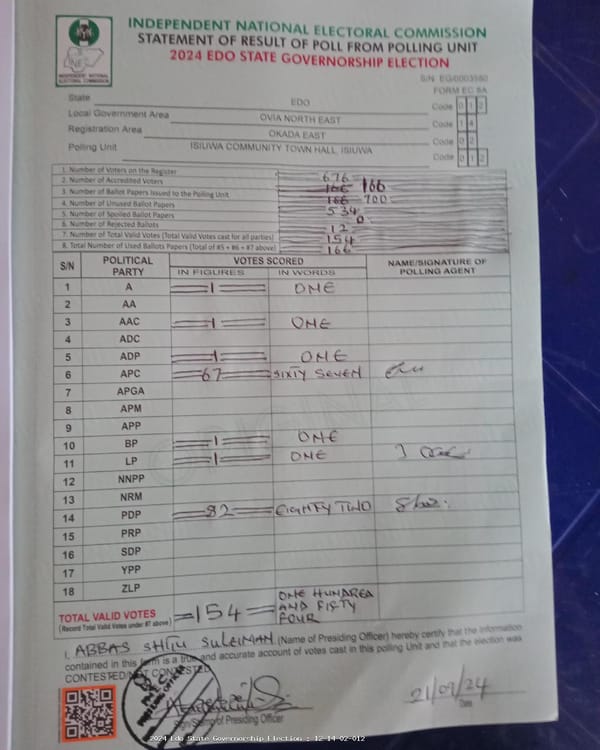 INDEPENDENT NATIONAL ELECTORAL COMMISSION
STATEMENT OF RESULT OF POLL FROM POLLING UNIT
2024 EDO STATE GOVERNORSHIP ELECTION
INEC
INDEPENDENT NATIONAL ELECTORAL COMMISSION
S/N EG/0003560
FORM EC 8A
State EDO Code 0 1 2
Local Government Area OVIA NORTH EAST Code 1 4
Registration Area OKADA EAST Code 0 2
Polling Unit ISILIWA COMMUNITY TOWN HALL, ISIUWA Code 0 1 2
1. Number of Voters on the Register 676
2. Number of Accredited Voters 166 166
3. Number of Ballot Papers Issued to the Polling Unit 166 700
4. Number of Unused Ballot Papers 534
5. Number of Spoiled Ballot Papers 0
6. Number of Rejected Ballots 12
7. Number of Total Valid Votes (Total Valid Votes cast for all parties) 154
8. Total Number of Used Ballots Papers (Total of #5 + #6 + #7 above) 166
S/N POLITICAL PARTY VOTES SCORED IN FIGURES IN WORDS NAME/SIGNATURE OF POLLING AGENT
1 A 1 ONE
2 AA
3 AAC 1 ONE
4 ADC
5 ADP 1 ONE
6 APC 67 SIXTY SEVEN
7 APGA
8 APM
9 APP
10 BP 1 ONE
11 LP 1 ONE
12 NNPP
13 NRM
14 PDP 82 EIGHTY TWO
15 PRP
16 SDP
17 YPP
18 ZLP
TOTAL VALID VOTES =154= ONE HUNDREA AND FIFTY FOUR
(Record Total Valid Votes under #7 above)
I, ABBAS SHITU SULEIMAN (Name of Presiding Officer) hereby certify that the information
contained in this form is a true and accurate account of votes cast in this polling Unit and that the election was
CONTESTED/NOT CONTESTED
21/09/24
Sign/Stamp of Presiding Officer Date
2024 Edo State Governorship Election : 12-14-02-012